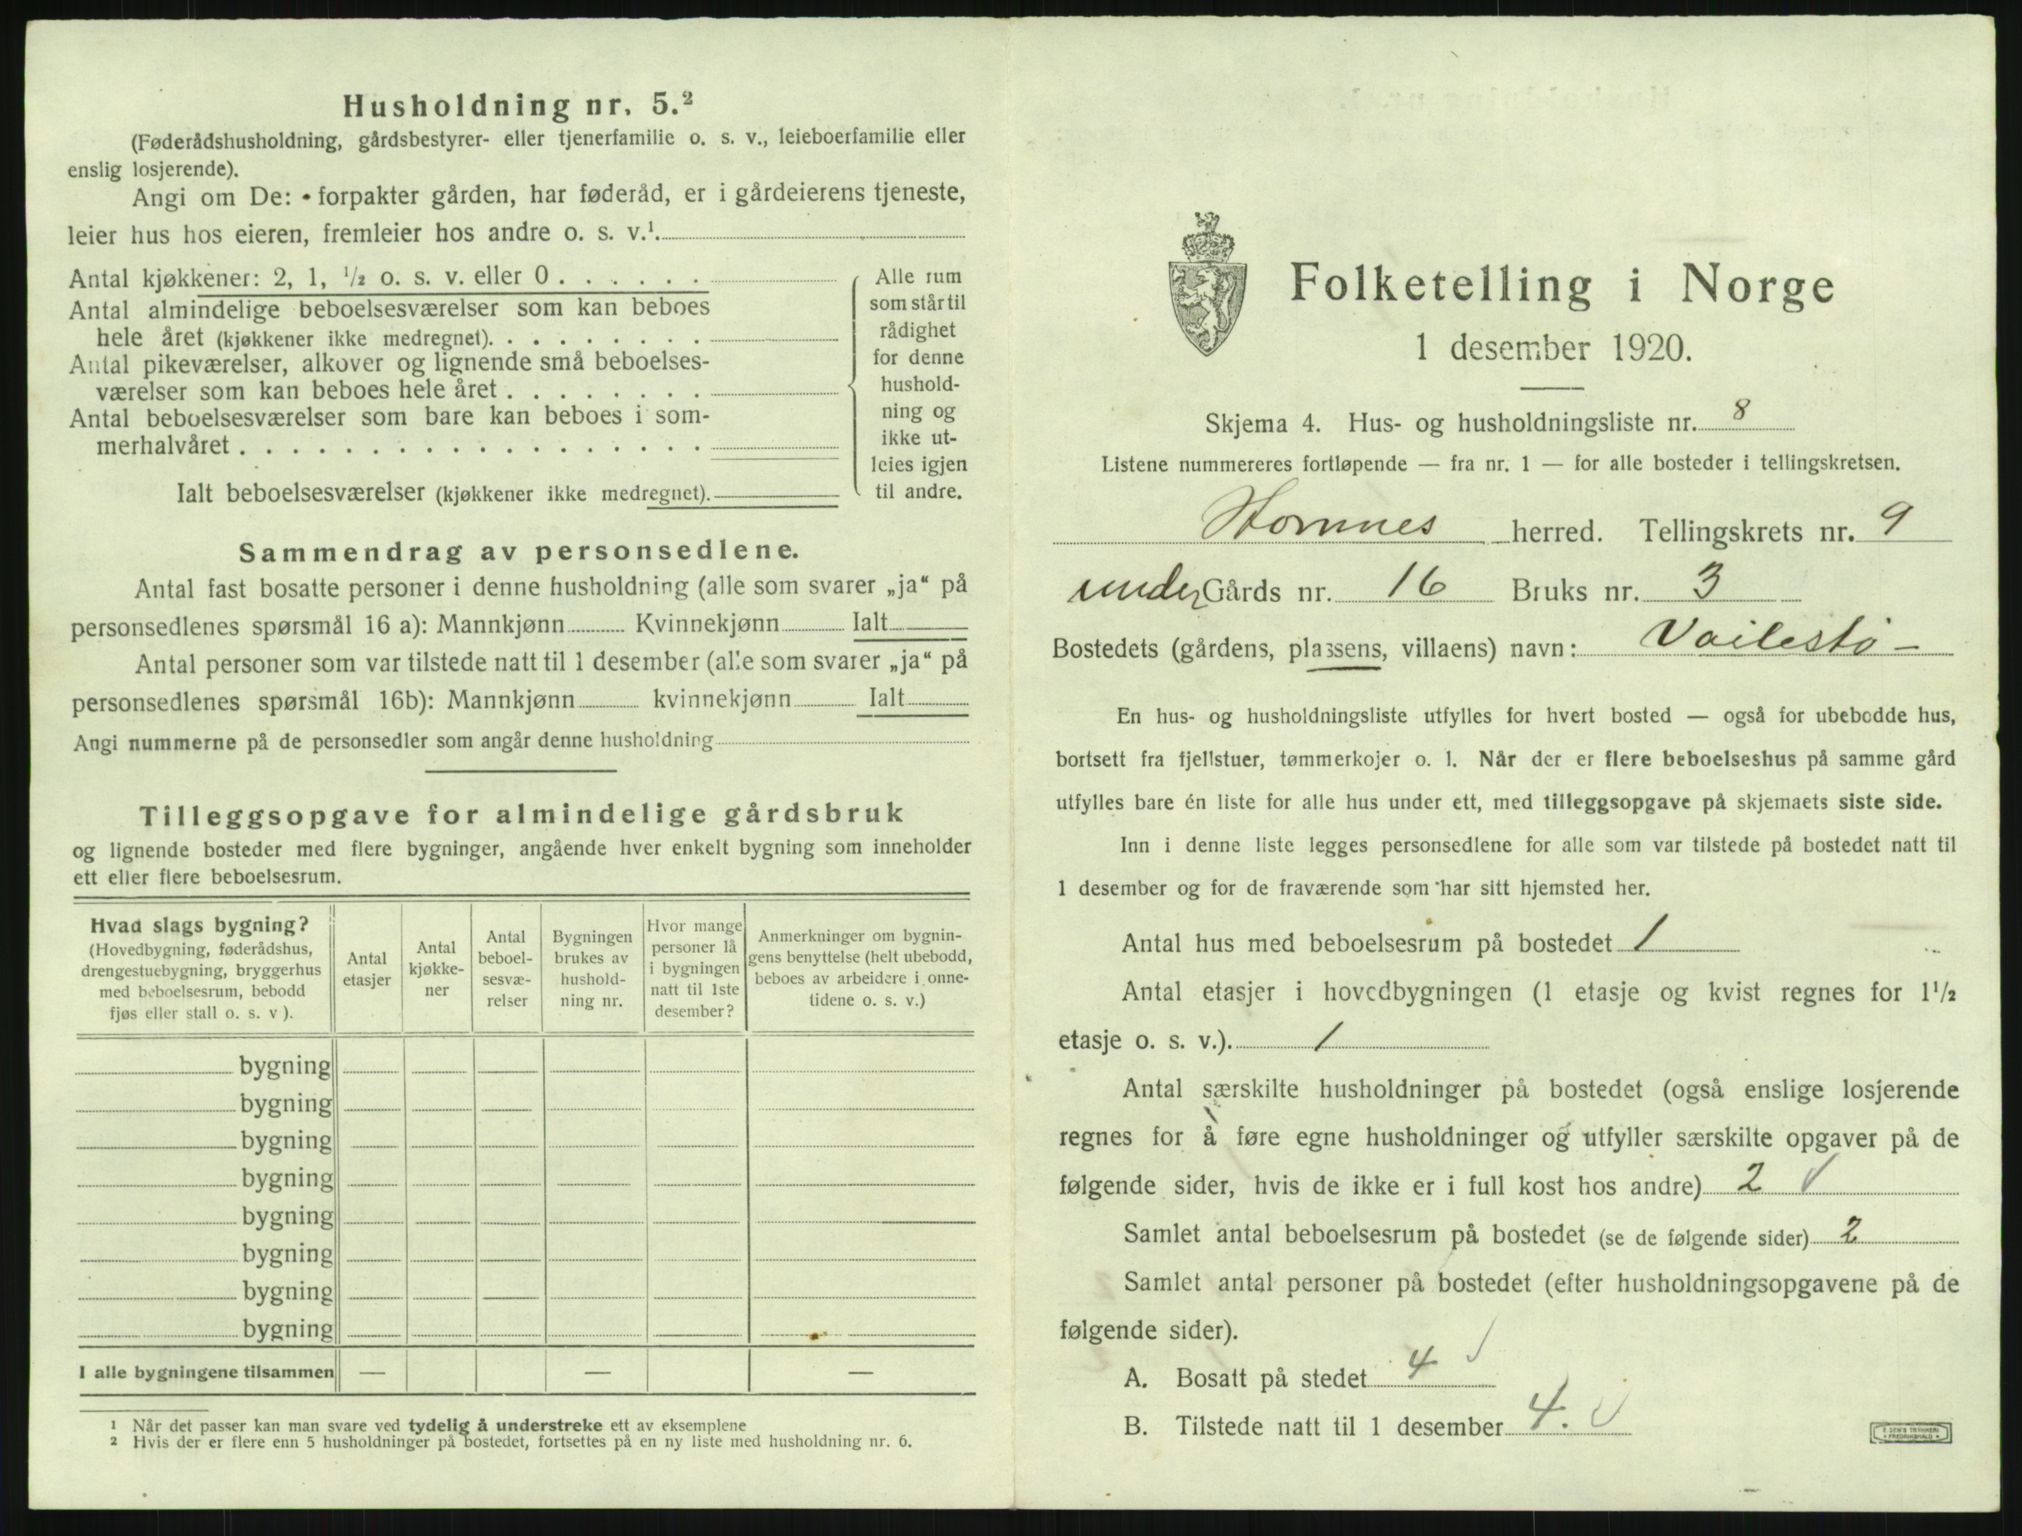 Husholdning nr. 5.²
(Føderådshusholdning, gårdsbestyrer- eller tjenerfamilie o. s. v., leieboerfamilie eller
enslig losjerende).
Angi om De: forpakter gården, har føderåd, er i gårdeierens tjeneste,
leier hus hos eieren, fremleier hos andre o. s. v.¹
Antal kjøkkener: 2, 1, ½ o. s. v. eller 0
Antal almindelige beboelsesværelser som kan beboes
hele året (kjøkkener ikke medregnet).
Antal pikeværelser, alkover og lignende små beboelses-
værelser som kan beboes hele året
Antal beboelsesværelser som bare kan beboes i som-
merhalvåret
Ialt beboelsesværelser (kjøkkener ikke medregnet).
Alle rum
som står til
rådighet
for denne
hushold-
ning og
ikke ut-
leies igjen
til andre.
Sammendrag av personsedlene.
Antal fast bosatte personer i denne husholdning (alle som svarer „ja“ på
personsedlenes spørsmål 16 a): Mannkjønn Kvinnekjønn Ialt
Antal personer som var tilstede natt til 1 desember (alle som svarer „ja“ på
personsedlenes spørsmål 16b): Mannkjønn kvinnekjønn Ialt
Angi nummerne på de personsedler som angår denne husholdning
Tilleggsopgave for almindelige gårdsbruk
og lignende bosteder med flere bygninger, angående hver enkelt bygning som inneholder
ett eller flere beboelsesrum.
Hvad slags bygning?
(Hovedbygning, føderådshus,
drengestuebygning, bryggerhus
med beboelsesrum, bebodd
fjøs eller stall o. s. v ).
Antal
etasjer
Antal
kjøkke-
ner
Antal
beboel-
sesvæ-
relser
Bygningen
brukes av
hushold-
ning nr.
Hvor mange
personer lå
i bygningen
natt til 1ste
desember?
Anmerkninger om bygnin-
gens benyttelse (helt ubebodd,
beboes av arbeidere i onne-
tidene o. s. v.)
bygning
bygning
bygning
bygning
bygning
bygning
bygning
bygning
I alle bygningene tilsammen — — —
¹ Når det passer kan man svare ved tydelig å understreke ett av eksemplene
² Hvis der er flere enn 5 husholdninger på bostedet, fortsettes på en ny liste med husholdning nr. 6.
Folketelling i Norge
1 desember 1920.
Skjema 4. Hus- og husholdningsliste nr. 8
Listene nummereres fortløpende — fra nr. 1 — for alle bosteder i tellingskretsen.
Hornnes herred. Tellingskrets nr. 9
under Gårds nr. 16 Bruks nr. 3
Bostedets (gårdens, plassens, villaens) navn: Vailestø —
En hus- og husholdningsliste utfylles for hvert bosted — også for ubebodde hus,
bortsett fra fjellstuer, tømmerkojer o. l. Når der er flere beboelseshus på samme gård
utfylles bare én liste for alle hus under ett, med tilleggsopgave på skjemaets siste side.
Inn i denne liste legges personsedlene for alle som var tilstede på bostedet natt til
1 desember og for de fraværende som har sitt hjemsted her.
Antal hus med beboelsesrum på bostedet 1
Antal etasjer i hovedbygningen (1 etasje og kvist regnes for 1½
etasje o. s. v.). 1
Antal særskilte husholdninger på bostedet (også enslige losjerende
regnes for å føre egne husholdninger og utfyller særskilte opgaver på de
følgende sider, hvis de ikke er i full kost hos andre) 2 √
Samlet antal beboelsesrum på bostedet (se de følgende sider) 2
Samlet antal personer på bostedet (efter husholdningsopgavene på de
følgende sider).
A. Bosatt på stedet 4 √
B. Tilstede natt til 1 desember 4. √